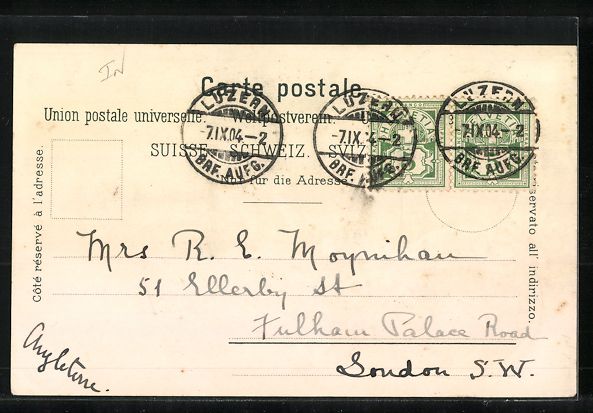 IN
Carte postale.
Union postale universelle. Weltpostverein. U
SUISSE. SCHWEIZ. SVIZ
Nur für die Adresse.
LUZERN
-7.IX.04-2
BRF. AUFG.
LUZERN
-7.IX. 4-2
BRF. AUFG.
LUZERN
-7.IX.04-2
BRF. AUFG.
HELVETIA
HELVETIA
Côté réservé à l'adresse.
riservato all' indirizzo.
Mrs R. E. Moynihan
51 Ellerby St
Fulham Palace Road
London S.W.
Angleterre.